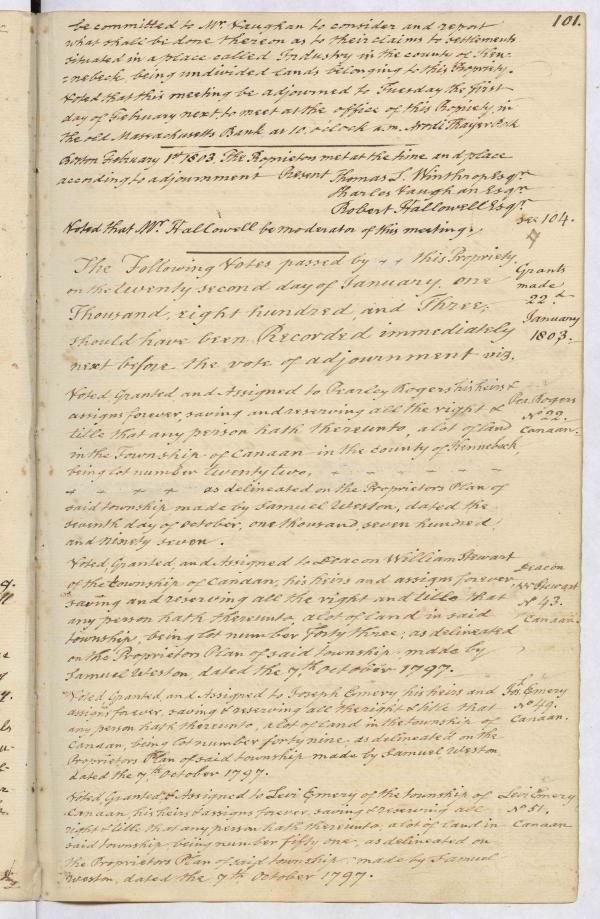 101.
be committed to Mr. Vaughan to consider and report
what shall be done thereon as to their claims to settlements
situated in a place called Industry in the county of Ken-
-nebeck being undivided Lands belonging to this Propriety.
Voted that this meeting be adjourned to Tuesday the first
day of February next to meet at the office of this Propriety in
the old Massachusetts Bank at 10, o'clock a.m. Arodi Thayer
Boston February 1st 1803 The Proprietors met at the time and place
according to adjournment Present Thomas L. Winthrop Esqr
Charles Vaughan Esqr
Robert Hallowell Esqr
Voted that Mr. Hallowell be moderator of this meeting.
see 104.
The Following Votes passed by + + this Propriety
on the twenty second day of January, one
Thousand, eight hundred, and Three,
should have been Recorded immediately
next before the vote of adjournment viz.
Grants
made
22d
January
1803.
Voted, Granted, and Assigned to Pearley Rogers his heirs &
assigns forever, saving and reserving all the right &
title that any person hath thereunto, a lot of land
in the Township of Canaan in the county of Kennebeck,
being lot number twenty two, - - - - -
+ + + + as delineated on the Proprietors Plan of
said township made by Samuel Weston, dated the
seventh day of October, one thousand, seven hundred,
and ninety seven.
Rogers
No 22.
Canaan.
Voted, Granted, and Assigned to Deacon William Stewart
of the township of Canaan, his heirs and assigns forever
saving and reserving all the right and title that
any person hath thereunto, a lot of land in said
township, being lot number Forty three, as delineated
on the Proprietors Plan of said township made by
Samuel Weston, dated the 7th October 1797.
Deacon
Wm Stewart
No 43.
Canaan.
Voted, Granted, and Assigned to Joseph Emery his heirs and
assigns forever, saving & reserving all the right & title that
any person hath thereunto, a lot of land in the township of
Canaan, being lot number forty nine, as delineated on the
Proprietors Plan of said township made by Samuel Weston
dated the 7th October 1797.
Jos. Emery
No 49.
Canaan.
Voted, Granted & Assigned to Levi Emery of the township of
Canaan, his heirs & assigns forever, saving & reserving all
right & title that any person hath thereunto, a lot of land in
said township being number fifty one, as delineated on
the Proprietors Plan of said township made by Samuel
Weston, dated the 7th October 1797.
Levi Emery
No 51.
Canaan